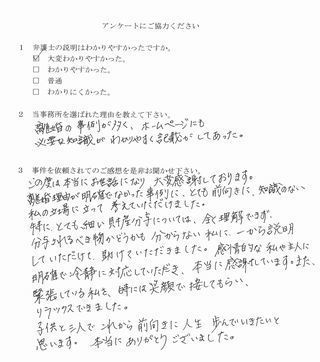 アンケートにご協力ください
1 弁護士の説明はわかりやすかったですか。
☑ 大変わかりやすかった。
□ わかりやすかった。
□ 普通
□ わかりにくかった。
2 当事務所を選ばれた理由を教えて下さい。
離婚の事例が多く、ホームページにも
必要な知識がわかりやすく記載がしてあった。
3 事件を依頼されてのご感想を是非お聞かせ下さい。
この度は本当にお世話になり大変感謝しております。
離婚理由が明確でなかった事例に、とても前向きに、知識のない
私の立場に立って考えていただけました。
特に、とても細い財産分与については、全く理解できず、
分与されるべき物かどうかも分からない私に、一から説明
していただけて、助けていただきました。感情的な私や主人に
明確で冷静に対応していただき、本当に感謝しています。また、
緊張している私を、時には笑顔で接してもらい、
リラックスできました。
子供と三人でこれから前向きに人生歩んでいきたいと
思います。本当にありがとうございました。